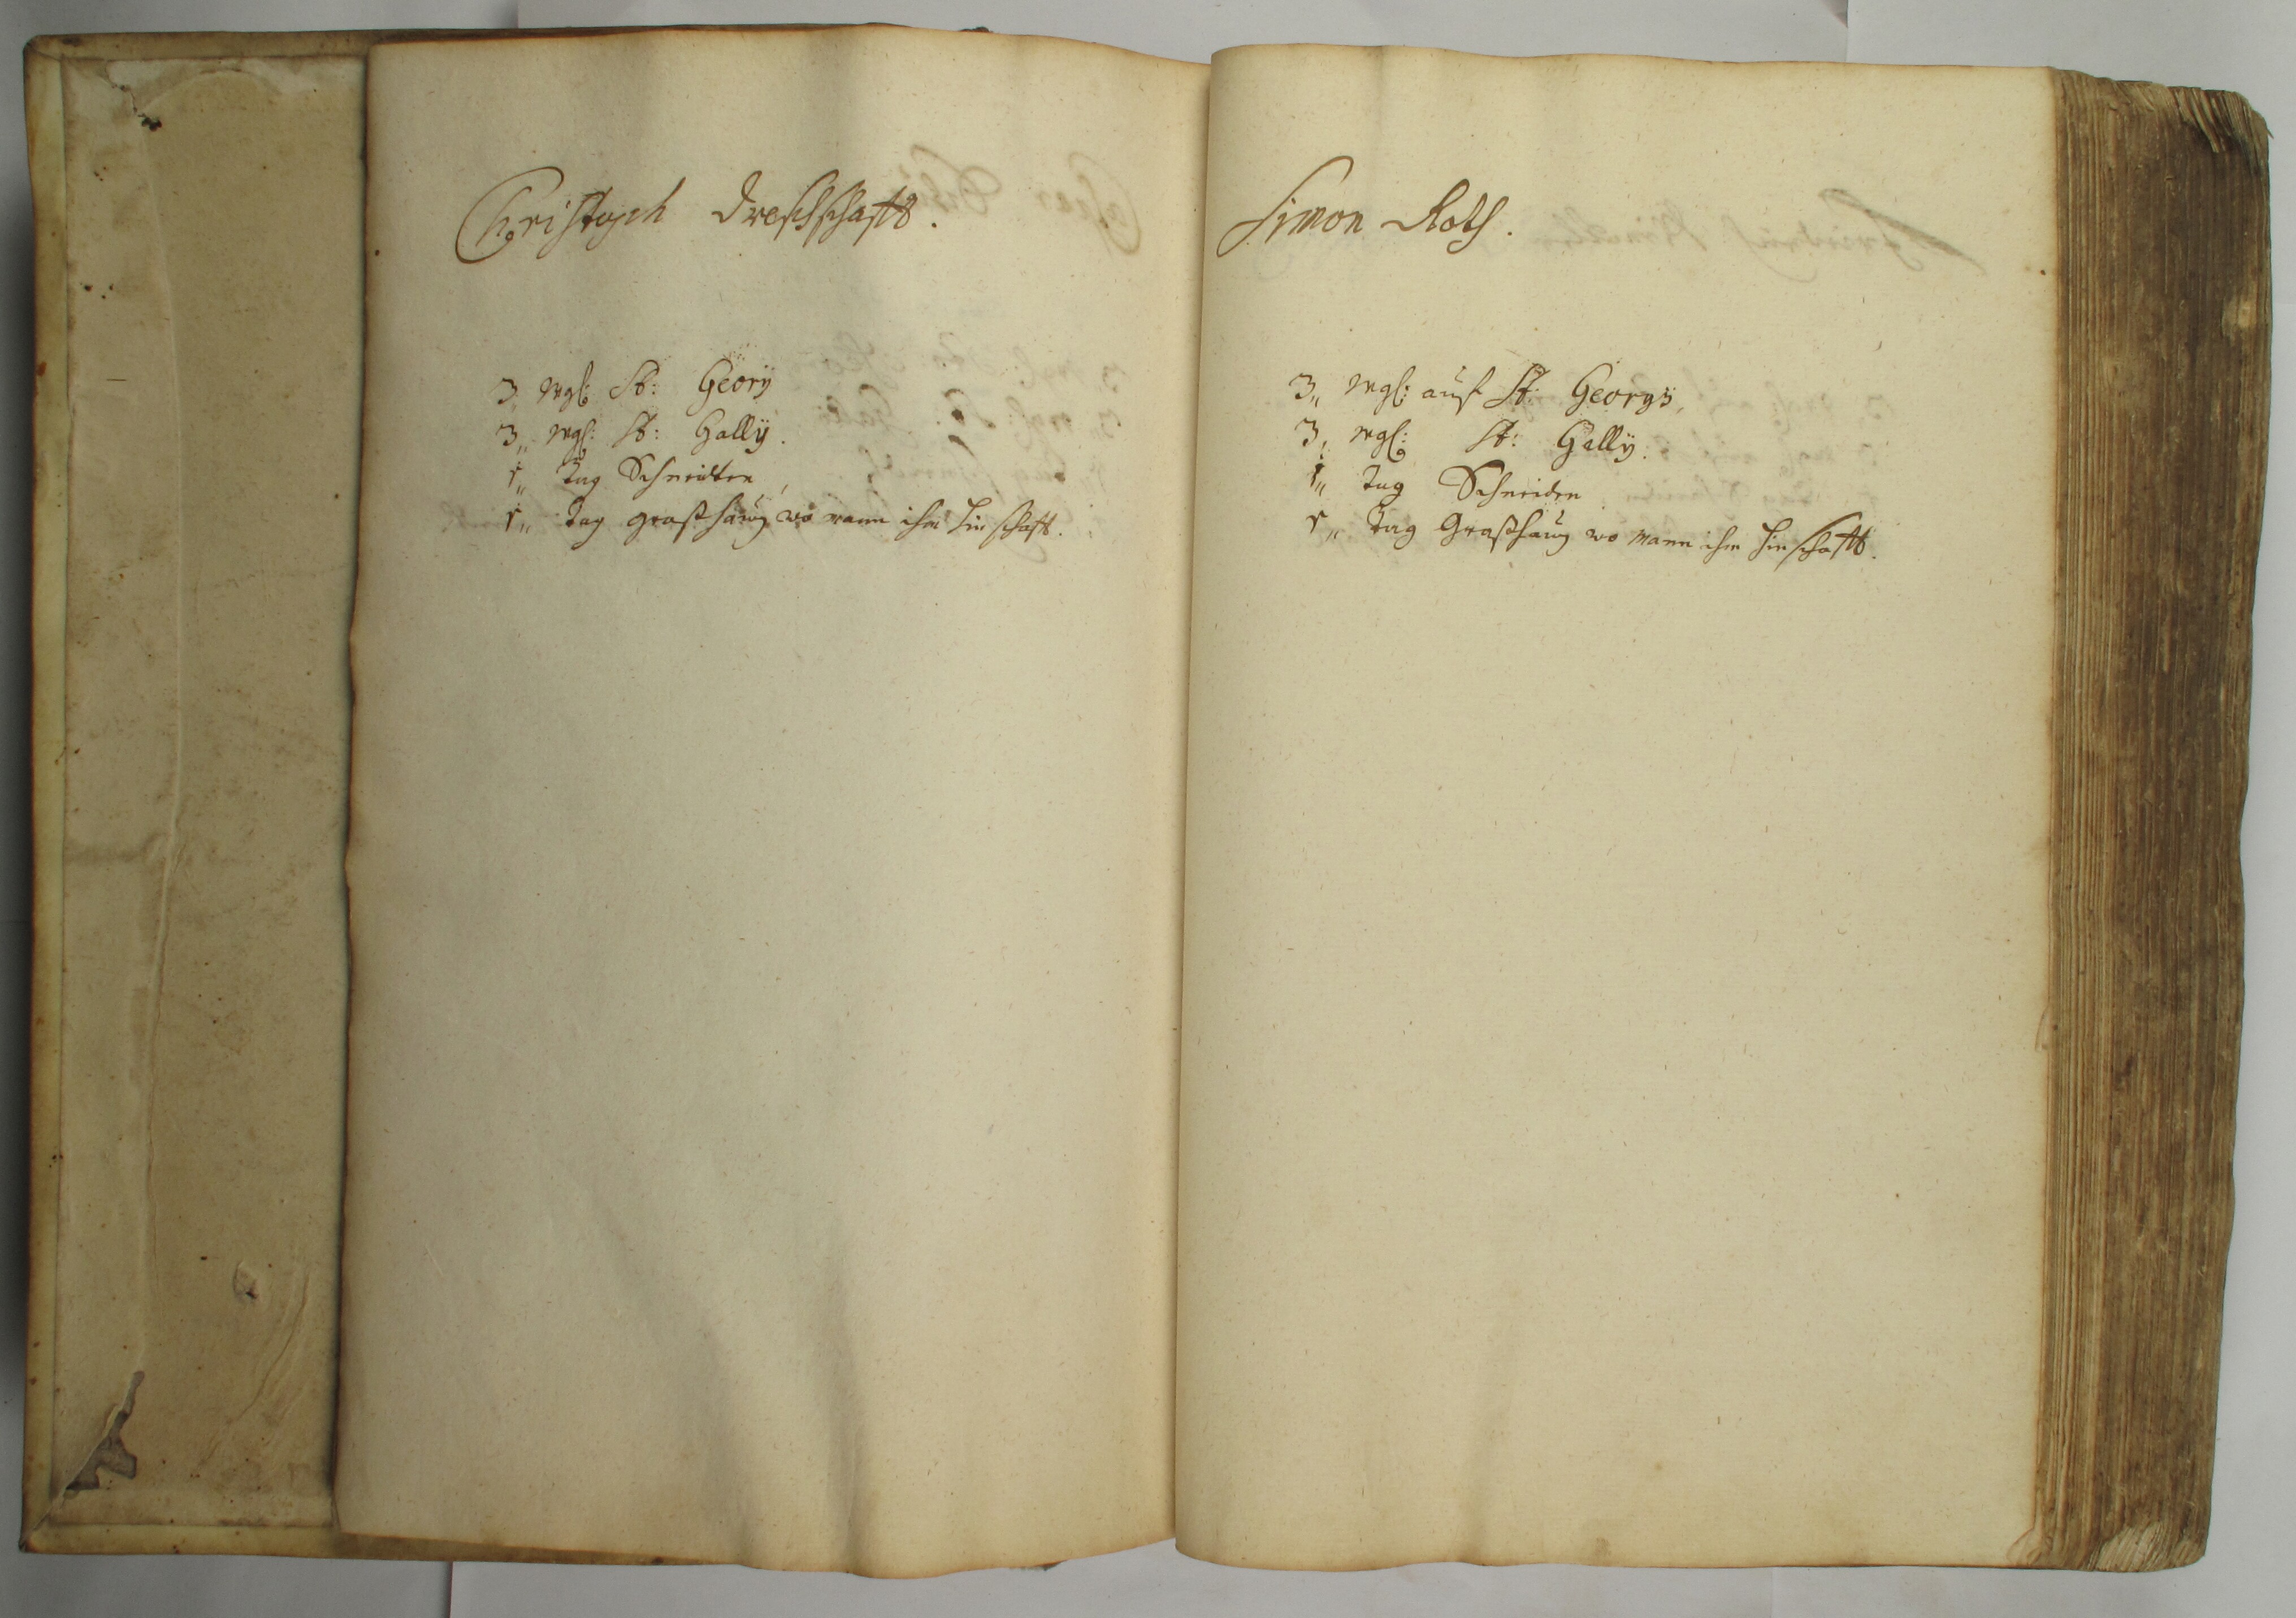 Christoph Dreschschafft.
3„ wgl: St: Geory
3„ wgl: St: Gally.
1„ Tag Schneidten,
1„ Tag graßhaug wo mann ihn hin schafft.
Simon Roth.
3„ wgl: auf St: Georgy,
3„ wgl: St: Gally.
1„ Tag Schneiden
1„ Tag Graßhaug wo mann ihn hin schafft.